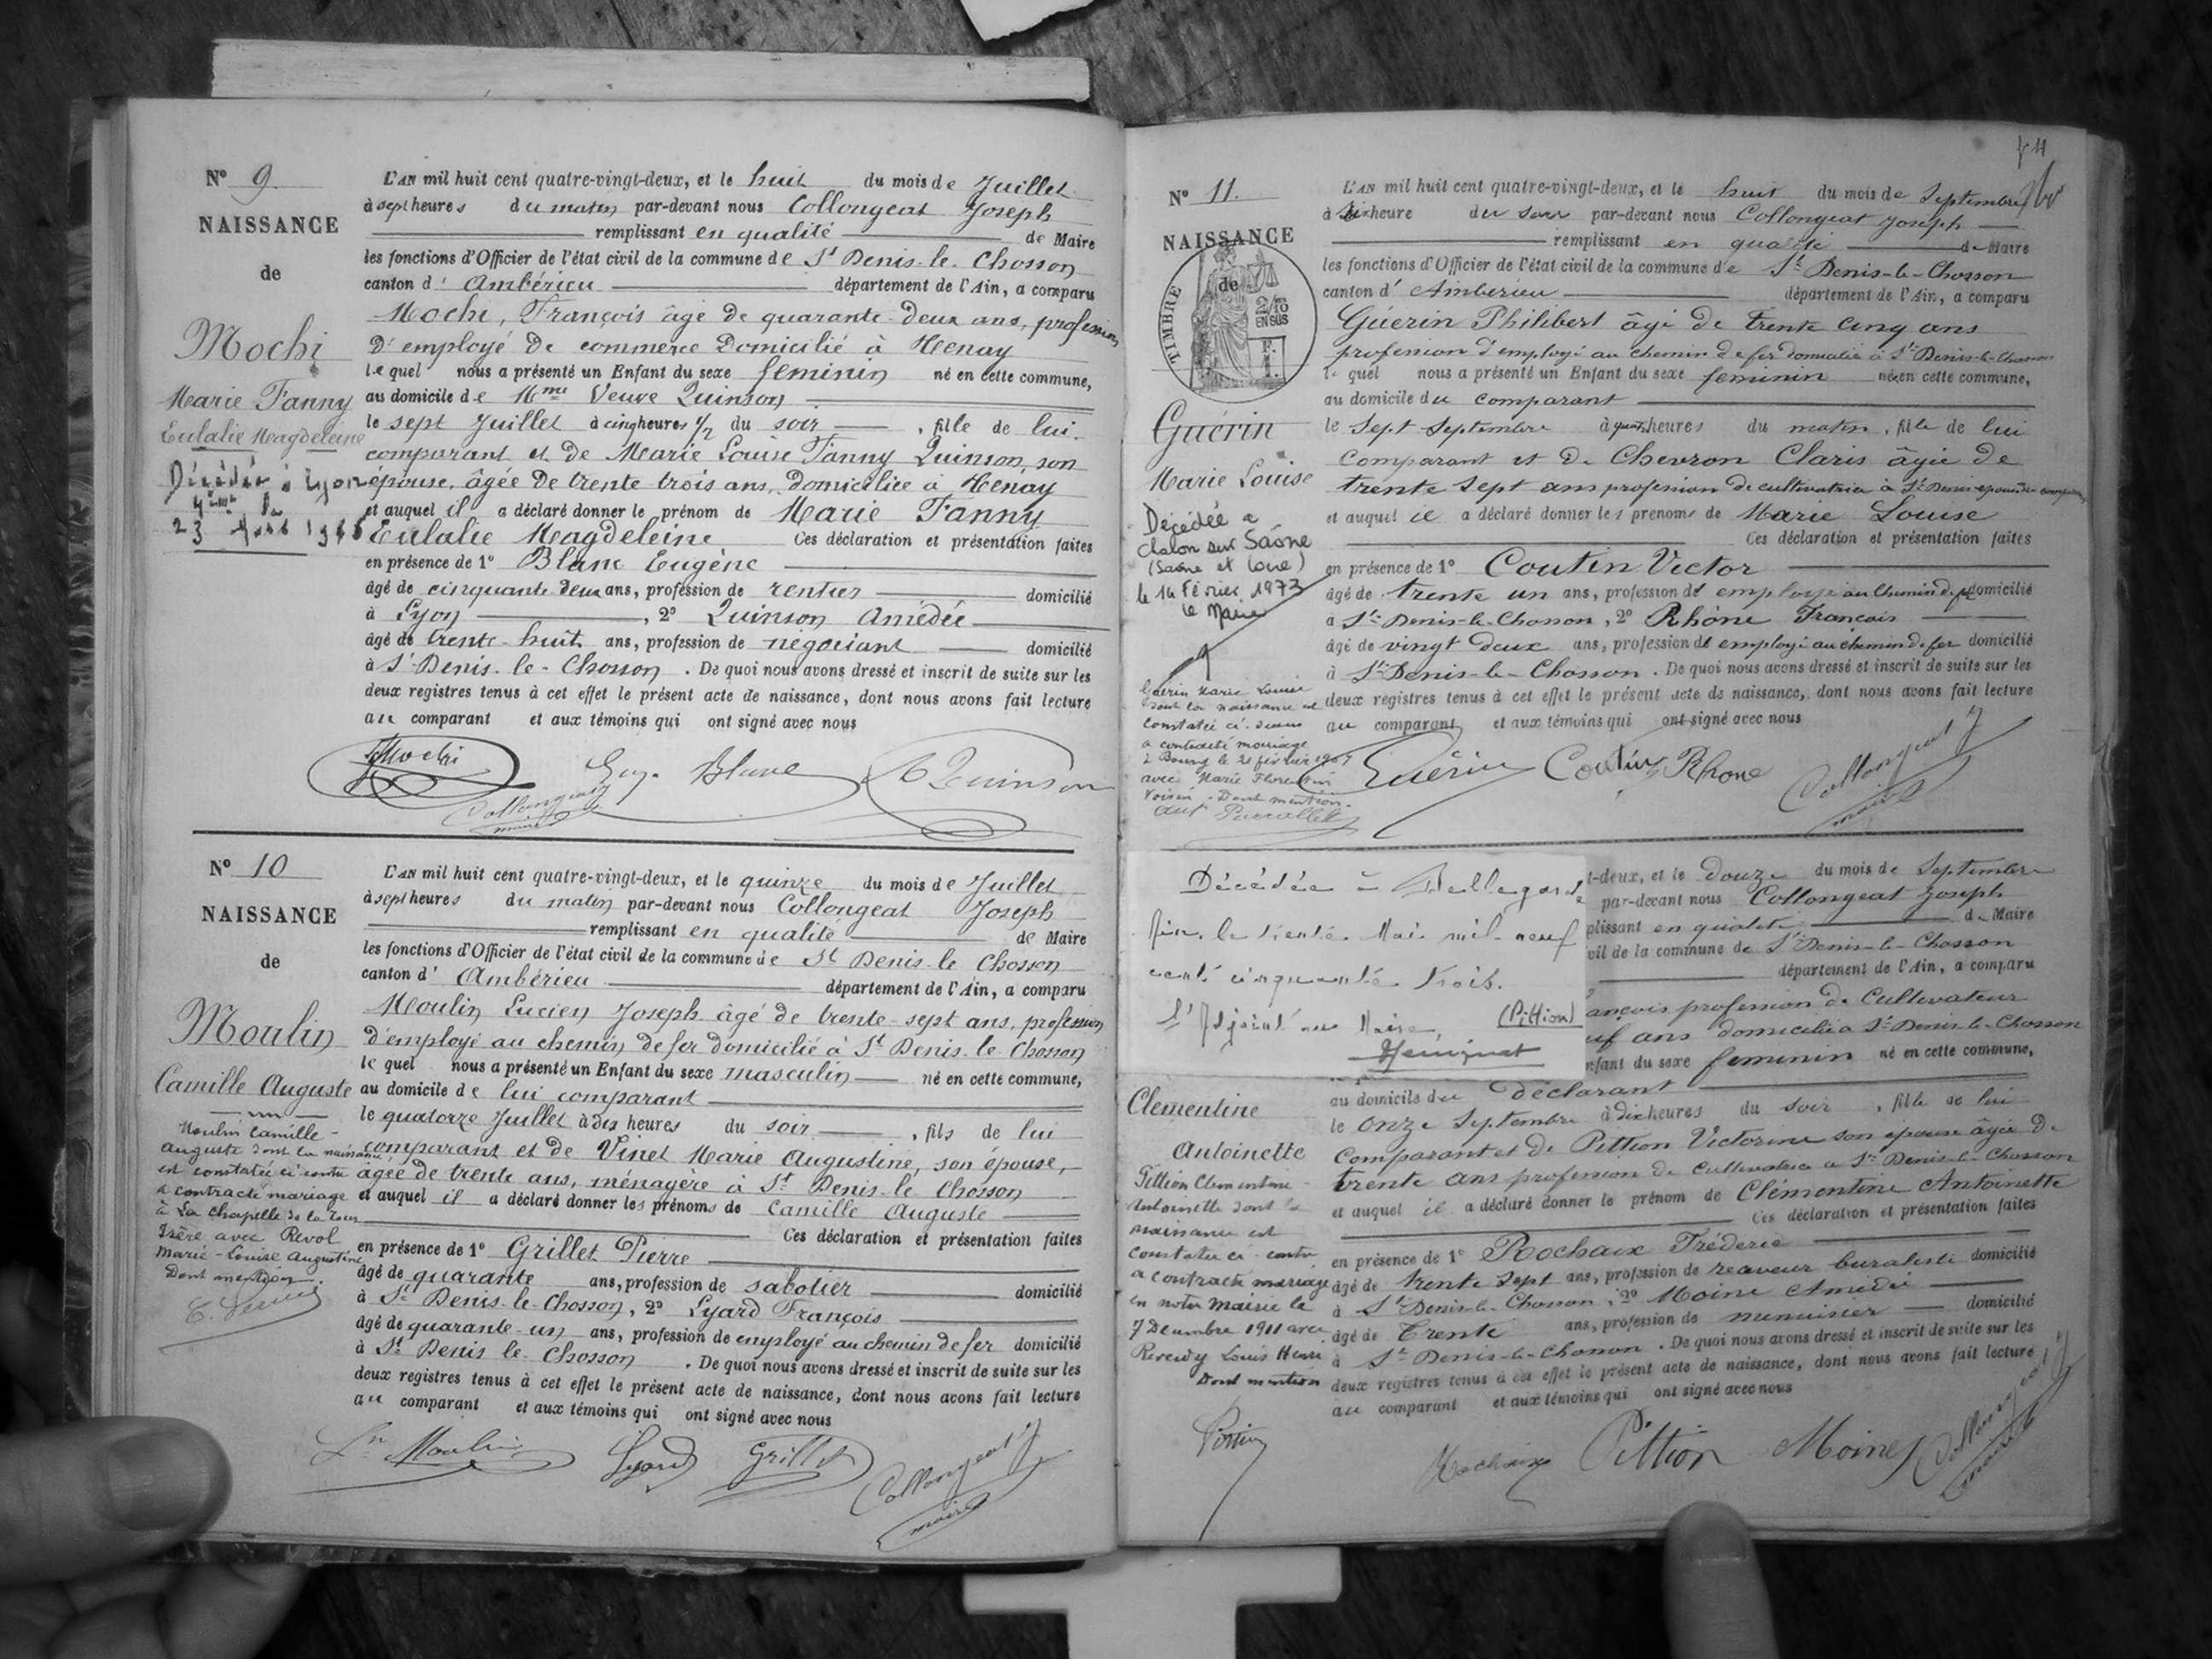 N° 9.
NAISSANCE
de
Mochi
Marie Fanny
Eulalie Magdeleine
Décédée à Lyon
4ème le
23 Août
L'AN mil huit cent quatre-vingt-deux, et le huit du mois de Juillet
à sept heures du matin par-devant nous Collongeat Joseph
remplissant en qualité de Maire
les fonctions d'Officier de l'état civil de la commune de St Denis-le-Chosson
canton d'Ambérieu département de l'Ain, a comparu
Mochi, François âgé de quarante-deux ans, profession
d'employé de commerce domicilié à Tenay
lequel nous a présenté un Enfant du sexe féminin né en cette commune,
au domicile de Mme Veuve Quinson
le sept Juillet à cinq heures 1/2 du soir, fille de lui
comparant et de Marie Louise Fanny Quinson, son
épouse, âgée de trente trois ans, domiciliée à Tenay
et auquel il a déclaré donner le prénom de Marie Fanny
Eulalie Magdeleine Ces déclaration et présentation faites
en présence de 1° Blanc Eugène
âgé de cinquante deux ans, profession de rentier domicilié
à Lyon, 2° Quinson Amédée
âgé de trente-huit ans, profession de négociant domicilié
à St Denis-le-Chosson. De quoi nous avons dressé et inscrit de suite sur les
deux registres tenus à cet effet le présent acte de naissance, dont nous avons fait lecture
au comparant et aux témoins qui ont signé avec nous
Mochi Eug. Blanc A Quinson
Collongeat
maire
N° 10
NAISSANCE
de
Moulin
Camille Auguste
Moulin Camille-
Auguste dont la naissance
est constatée ci-contre
a contracté mariage
à La Chapelle de la Tour
Isère avec Revol
Marie-Louise Augustine
Dont mention.
L'AN mil huit cent quatre-vingt-deux, et le quinze du mois de Juillet
à sept heures du matin par-devant nous Collongeat Joseph
remplissant en qualité de Maire
les fonctions d'Officier de l'état civil de la commune de St Denis-le Chosson
canton d'Ambérieu département de l'Ain, a comparu
Moulin Lucien Joseph âgé de trente-sept ans, profession
d'employé au chemin de fer domicilié à St Denis-le-Chosson
lequel nous a présenté un Enfant du sexe masculin né en cette commune,
au domicile de lui comparant
le quatorze Juillet à dix heures du soir, fils de lui
comparant et de Vinet Marie Augustine, son épouse,
âgée de trente ans, ménagère à St Denis-le Chosson
et auquel il a déclaré donner les prénoms de Camille Auguste
Ces déclaration et présentation faites
en présence de 1° Grillet Pierre
âgé de quarante ans, profession de sabotier domicilié
à St Denis-le-Chosson, 2° Lyard François
âgé de quarante-un ans, profession de employé au chemin de fer domicilié
à St Denis le Chosson. De quoi nous avons dressé et inscrit de suite sur les
deux registres tenus à cet effet le présent acte de naissance, dont nous avons fait lecture
au comparant et aux témoins qui ont signé avec nous
Ln Moulin Lyard Grillet Collongeat J
maire
N° 11.
NAISSANCE
de
TIMBRE
2/10
EN SUS
Guérin
Marie Louise
Décédée à
Chalon sur Saône
(Saône et Loire)
le 14 Février 1973
le Maire
Guérin Marie Louise
dont la naissance est
constatée ci-dessus
a contracté mariage
à Bourg le 21 février
avec Marie Florentin
Voisin. Dont mention.
L'AN mil huit cent quatre-vingt-deux, et le huit du mois de Septembre
à six heure du soir par-devant nous Collongeat Joseph
remplissant en qualité de Maire
les fonctions d'Officier de l'état civil de la commune de St Denis-le-Chosson
canton d'Ambérieu département de l'Ain, a comparu
Guérin Philibert âgé de trente cinq ans
profession d'employé au chemin de fer domicilié à St Denis-le-Chosson
lequel nous a présenté un Enfant du sexe feminin né en cette commune,
au domicile du comparant
le Sept Septembre à quatre heures du matin, fille de lui
comparant et de Chevron Claris âgée de
trente sept ans profession de cultivatrice à St Denis épouse du comparant
et auquel il a déclaré donner les prénoms de Marie Louise
Ces déclaration et présentation faites
en présence de 1° Coutin Victor
âgé de trente un ans, profession d'employé au chemin de fer domicilié
à St Denis-le-Chosson, 2° Rhône Francois
âgé de vingt deux ans, profession d'employé au chemin de fer domicilié
à St Denis-le-Chosson. De quoi nous avons dressé et inscrit de suite sur les
deux registres tenus à cet effet le présent acte de naissance, dont nous avons fait lecture
au comparant et aux témoins qui ont signé avec nous
Guérin Coutin Rhone Collongeat J
maire
Décédée à Bellegarde
Ain, le trente Mai mil neuf
cent cinquante trois.
L'Adjoint au Maire, (Pittion)
Clementine
Antoinette
Pittion Clementine
Antoinette dont la
naissance est
constatée ci-contre
a contracté mariage
en notre mairie le
7 Décembre 1911 avec
Louis Henri
Dont mention
t-deux, et le douze du mois de Septembre
par-devant nous Collongeat Joseph
plissant en qualité de Maire
vil de la commune de St Denis-le-Chosson
département de l'Ain, a comparu
ançois profession de Cultivateur
uf ans domicilié à St Denis-le-Chosson
nfant du sexe feminin né en cette commune,
au domicile du déclarant
le onze Septembre à dix heures du soir, fille de lui
comparant et de Pittion Victorine son épouse âgée de
trente ans profession de cultivatrice à St Denis-le-Chosson
et auquel il a déclaré donner le prénom de Clémentine Antoinette
Ces déclaration et présentation faites
en présence de 1° Rochaix Fréderic
âgé de trente sept ans, profession de receveur buraliste domicilié
à St Denis-le-Chosson, 2° Moine Amédé
âgé de trente ans, profession de menuisier domicilié
à St Denis-le-Chosson. De quoi nous avons dressé et inscrit de suite sur les
deux registres tenus à cet effet le présent acte de naissance, dont nous avons fait lecture
au comparant et aux témoins qui ont signé avec nous
Rochaix Pittion Moine Collongeat J
maire